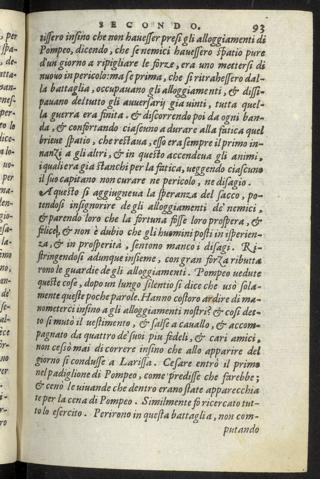 SECONDO. 93
tissero insino che non hauesser presi gli alloggiamenti di
Pompeo, dicendo, che se nemici hauessero spatio pure
d'un giorno a ripigliare le forze, era uno mettersi di
nuouo in pericolo: ma se prima, che si ritrahessero dal-
la battaglia, occupauano gli alloggiamenti, & dissi-
pauano deltutto gli auuersarij gia uinti, tutta quel-
la guerra era finita. & discorrendo poi da ogni ban-
da, & confortando ciascuno a durare alla fatica quel
brieue spatio, che restaua, esso era sempre il primo in-
nanzi a gli altri, & in questo accendeua gli animi,
i quali era gia stanchi per la fatica, ueggendo ciascuno
il suo capitano non curare ne pericolo, ne disagio.
Aquesto si aggiugneua la speranza del sacco, po-
tendosi insignorire degli alloggiamenti de' nemici,
& parendo loro che la fortuna fosse loro prospera, &
felice, & non è dubio che gli huomini posti in isperien-
za, & in prosperità, sentono manco i disagi. Ri-
stringendosi adunque insieme, con gran forza ributta
rono le guardie degli alloggiamenti. Pompeo uedute
queste cose, dopo un lungo silentio si dice che usò sola-
mente queste poche parole. Hanno costoro ardire di ma-
nometterci insino a gli alloggiamenti nostri? & cosi det-
to si mutò il uestimento, & salse a cauallo, & accom-
pagnato da quattro de' suoi piu fedeli, & cari amici,
non cessò mai di correre insino che allo apparire del
giorno si condusse a Larissa. Cesare entrò il primo
nel padiglione di Pompeo, come predisse che farebbe;
& cenò le uiuande che dentro erano state apparecchia
te per la cena di Pompeo. Similmente fò ricercato tut-
to lo esercito. Perirono in questa battaglia, non com-
putando